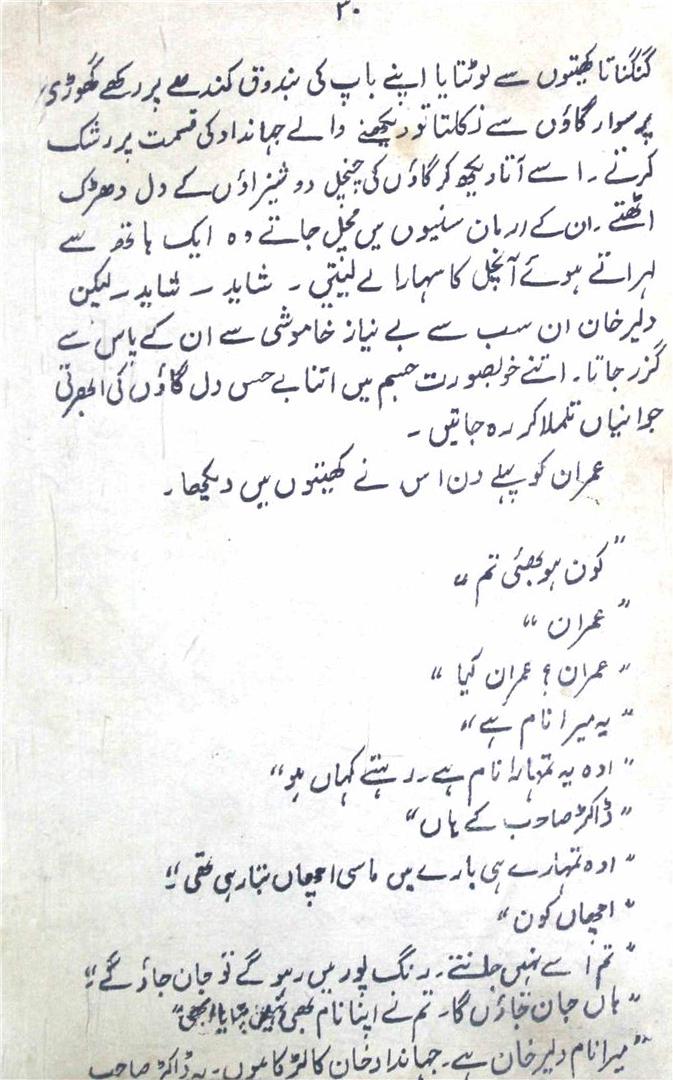 ۳۰
گنگناتا کھیتوں سے لوٹتا یا اپنے باپ کی بندوق کندھے پر رکھے گھوڑی
پر سوار گاؤں سے نکلتا تو دیکھنے والے جہانداد کی قسمت پر رشک
کرتے ۔ اسے آتا دیکھ کر گاؤں کی چنچل دوشیزاؤں کے دل دھڑک
اٹھتے ۔ ان کے ارمان سینوں میں مچل جاتے وہ ایک ہاتھ سے
لہراتے ہوئے آنچل کا سہارا لے لیتیں ۔ شاید ۔ شاید ۔ لیکن
دلیر خان ان سب سے بے نیاز خاموشی سے ان کے پاس سے
گزر جاتا ۔ اتنے خوبصورت جسم میں اتنا بے حس دل گاؤں کی ابھرتی
جوانیاں تلملا کر رہ جاتیں ۔
عمران کو پہلے دن اس نے کھیتوں میں دیکھا ۔
"کون ہو بھئی تم"
"عمران"
"عمران ؟ عمران کیا"
"یہ میرا نام ہے"
"اوہ یہ تمہارا نام ہے ۔ رہتے کہاں ہو"
"ڈاکٹر صاحب کے ہاں"
"اوہ تمہارے ہی بارے میں ماسی اچھاں بتا رہی تھی"
"اچھاں کون"
"تم اسے نہیں جانتے ۔ رنگ پور میں رہو گے تو جان جاؤ گے"
"ہاں جان جاؤں گا ۔ تم نے اپنا نام بھی نہیں بتایا ابھی"
"میرا نام دلیر خان ہے ۔ جہانداد خان کا لڑکا ہوں ۔ یہ ڈاکٹر صاحب